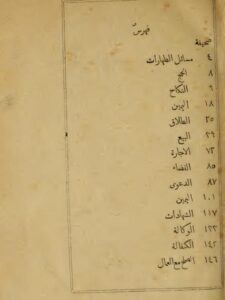 فهرس
صحيفة
٤ مسائل الطهارات
٨ الحج
٩ النكاح
١٨ اليمين
٢٥ الطلاق
٣٩ البيع
٧٣ الاجارة
٨٥ القضاء
٨٧ الدعوى
١٠١ اليمين
١١٧ الشهادات
١٣٣ الوكالة
١٤٢ الكفالة
١٤٦ الصلح مع العمال